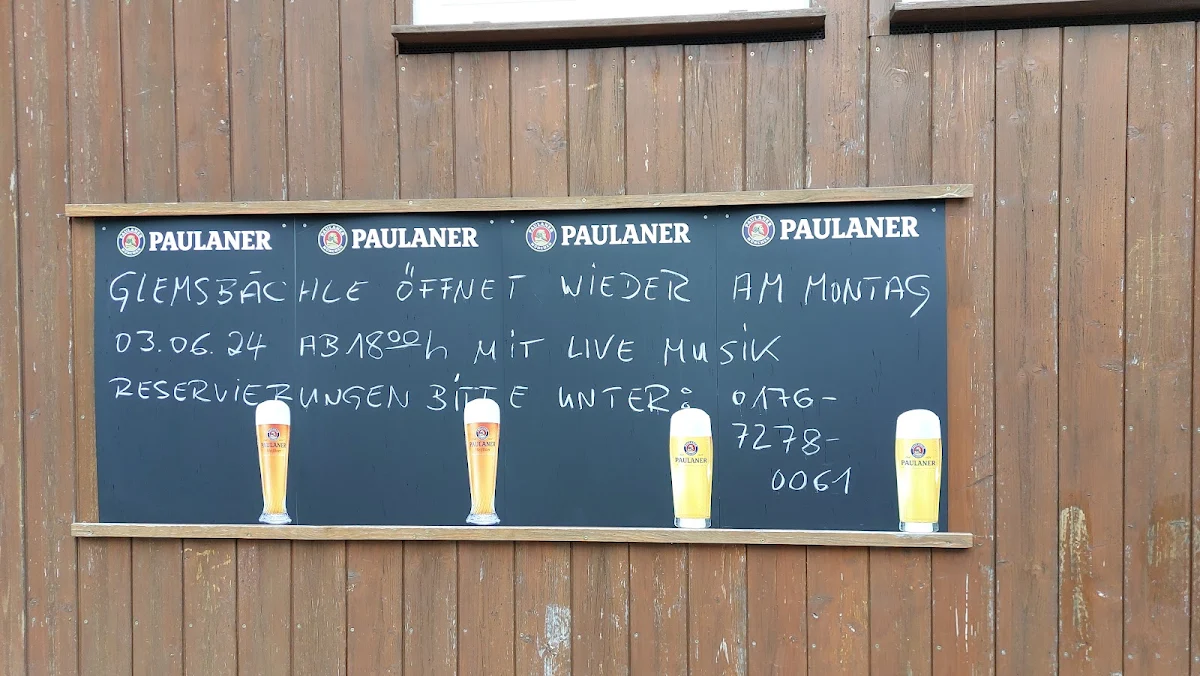 PAULANER PAULANER PAULANER PAULANER
GLEMSBÄCHLE ÖFFNET WIEDER AM MONTAG
03.06.24 AB 18⁰⁰h MIT LIVE MUSIK
RESERVIERUNGEN BITTE UNTER: 0176-
7278-
0061
PAULANER PAULANER PAULANER PAULANER